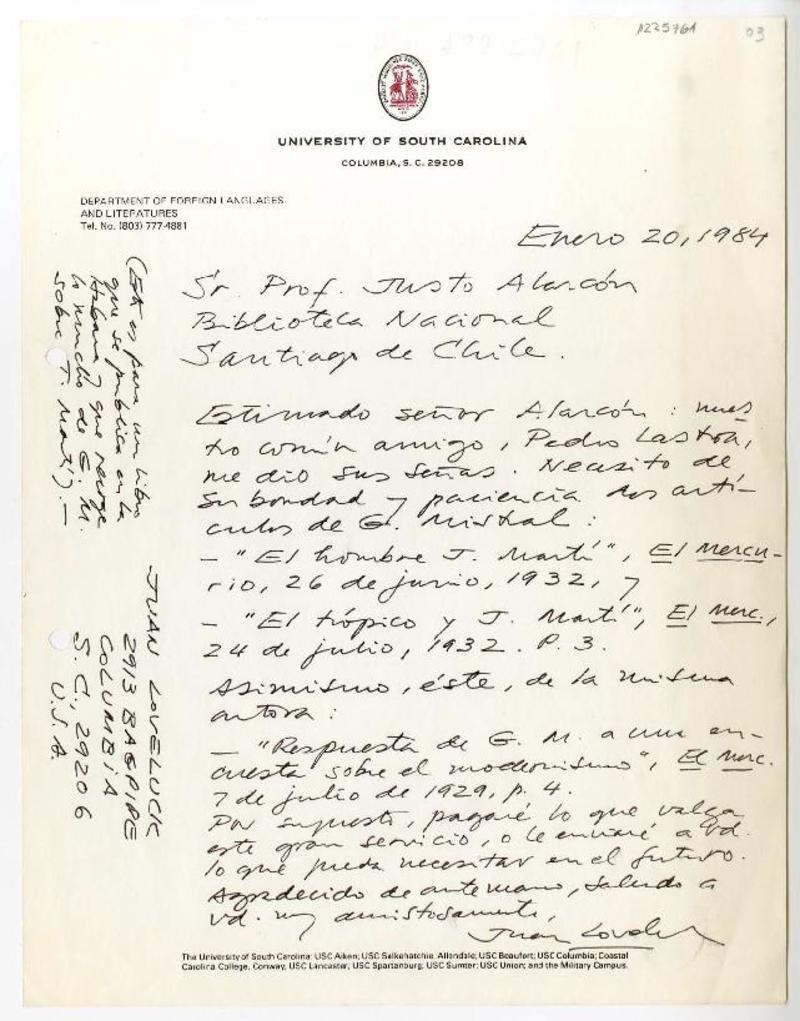 A225761
03
UNIVERSITY OF SOUTH CAROLINA
COLUMBIA, S. C. 29208
DEPARTMENT OF FOREIGN LANGUAGES
AND LITERATURES
Tel. No. (803) 777-4881
Enero 20, 1984
Sr. Prof. Justo Alarcón
Biblioteca Nacional
Santiago de Chile.
Estimado señor Alarcón: nues
tro común amigo, Pedro Lastra,
me dio sus señas. Necesito de
su bondad y paciencia dos artí-
culos de G. Mistral:
- "El hombre J. Martí", El Mercu-
rio, 26 de junio, 1932, y
- "El trópico y J. Martí", El Merc.,
24 de julio, 1932. P. 3.
Asimismo, éste, de la misma
autora:
- "Respuesta de G. M. a una en-
cuesta sobre el modernismo", El Merc.
7 de julio de 1929, p. 4.
Por supuesto, pagaré lo que valga
este gran servicio, o le enviaré a Vd.
lo que pueda necesitar en el futuro.
Agradecido de antemano, saludo a
Vd. muy amistosamente,
Juan Loveluck
(Esto es para un libro
que se publica en la
Habana y que recoge
lo mucho de G. M.
sobre J. Martí). -
JUAN LOVELUCK
2913 BAGPIPE
COLUMBIA
S. C., 29206
U.S.A.
The University of South Carolina: USC Aiken; USC Salkehatchie, Allendale; USC Beaufort; USC Columbia; Coastal
Carolina College, Conway; USC Lancaster; USC Spartanburg; USC Sumter; USC Union; and the Military Campus.